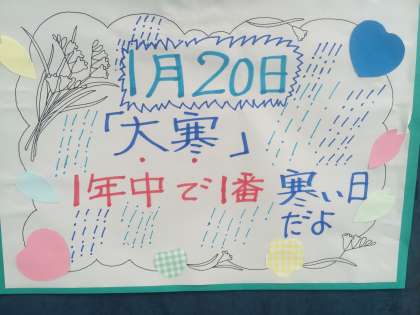 1月20日
「大寒」
1年中で1番 寒い日
だよ